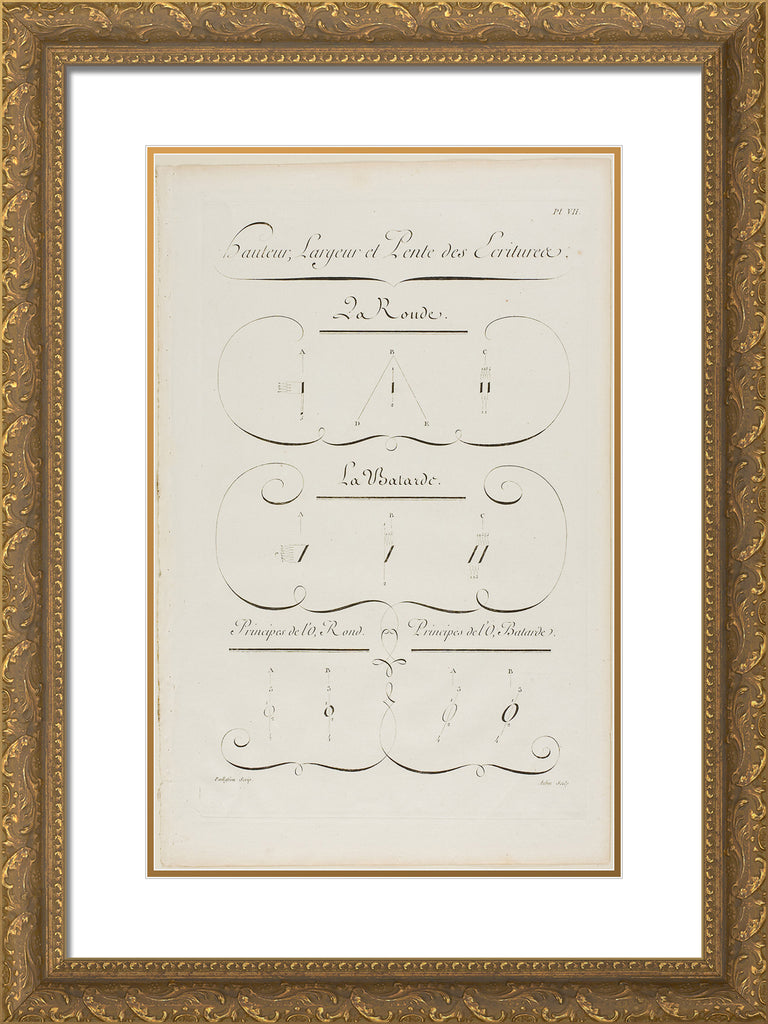 Pl. VII.
Hauteur, Largeur et Pente des Ecritures.
La Ronde.
A B C
D E
La Batarde.
A B C
Principes de l'O, Rond. Principes de l'O, Batarde.
A B A B
3 3 3 3
2 2 2 2
4 4 4 4
Paillasson Scrip. Aubin Sculp.